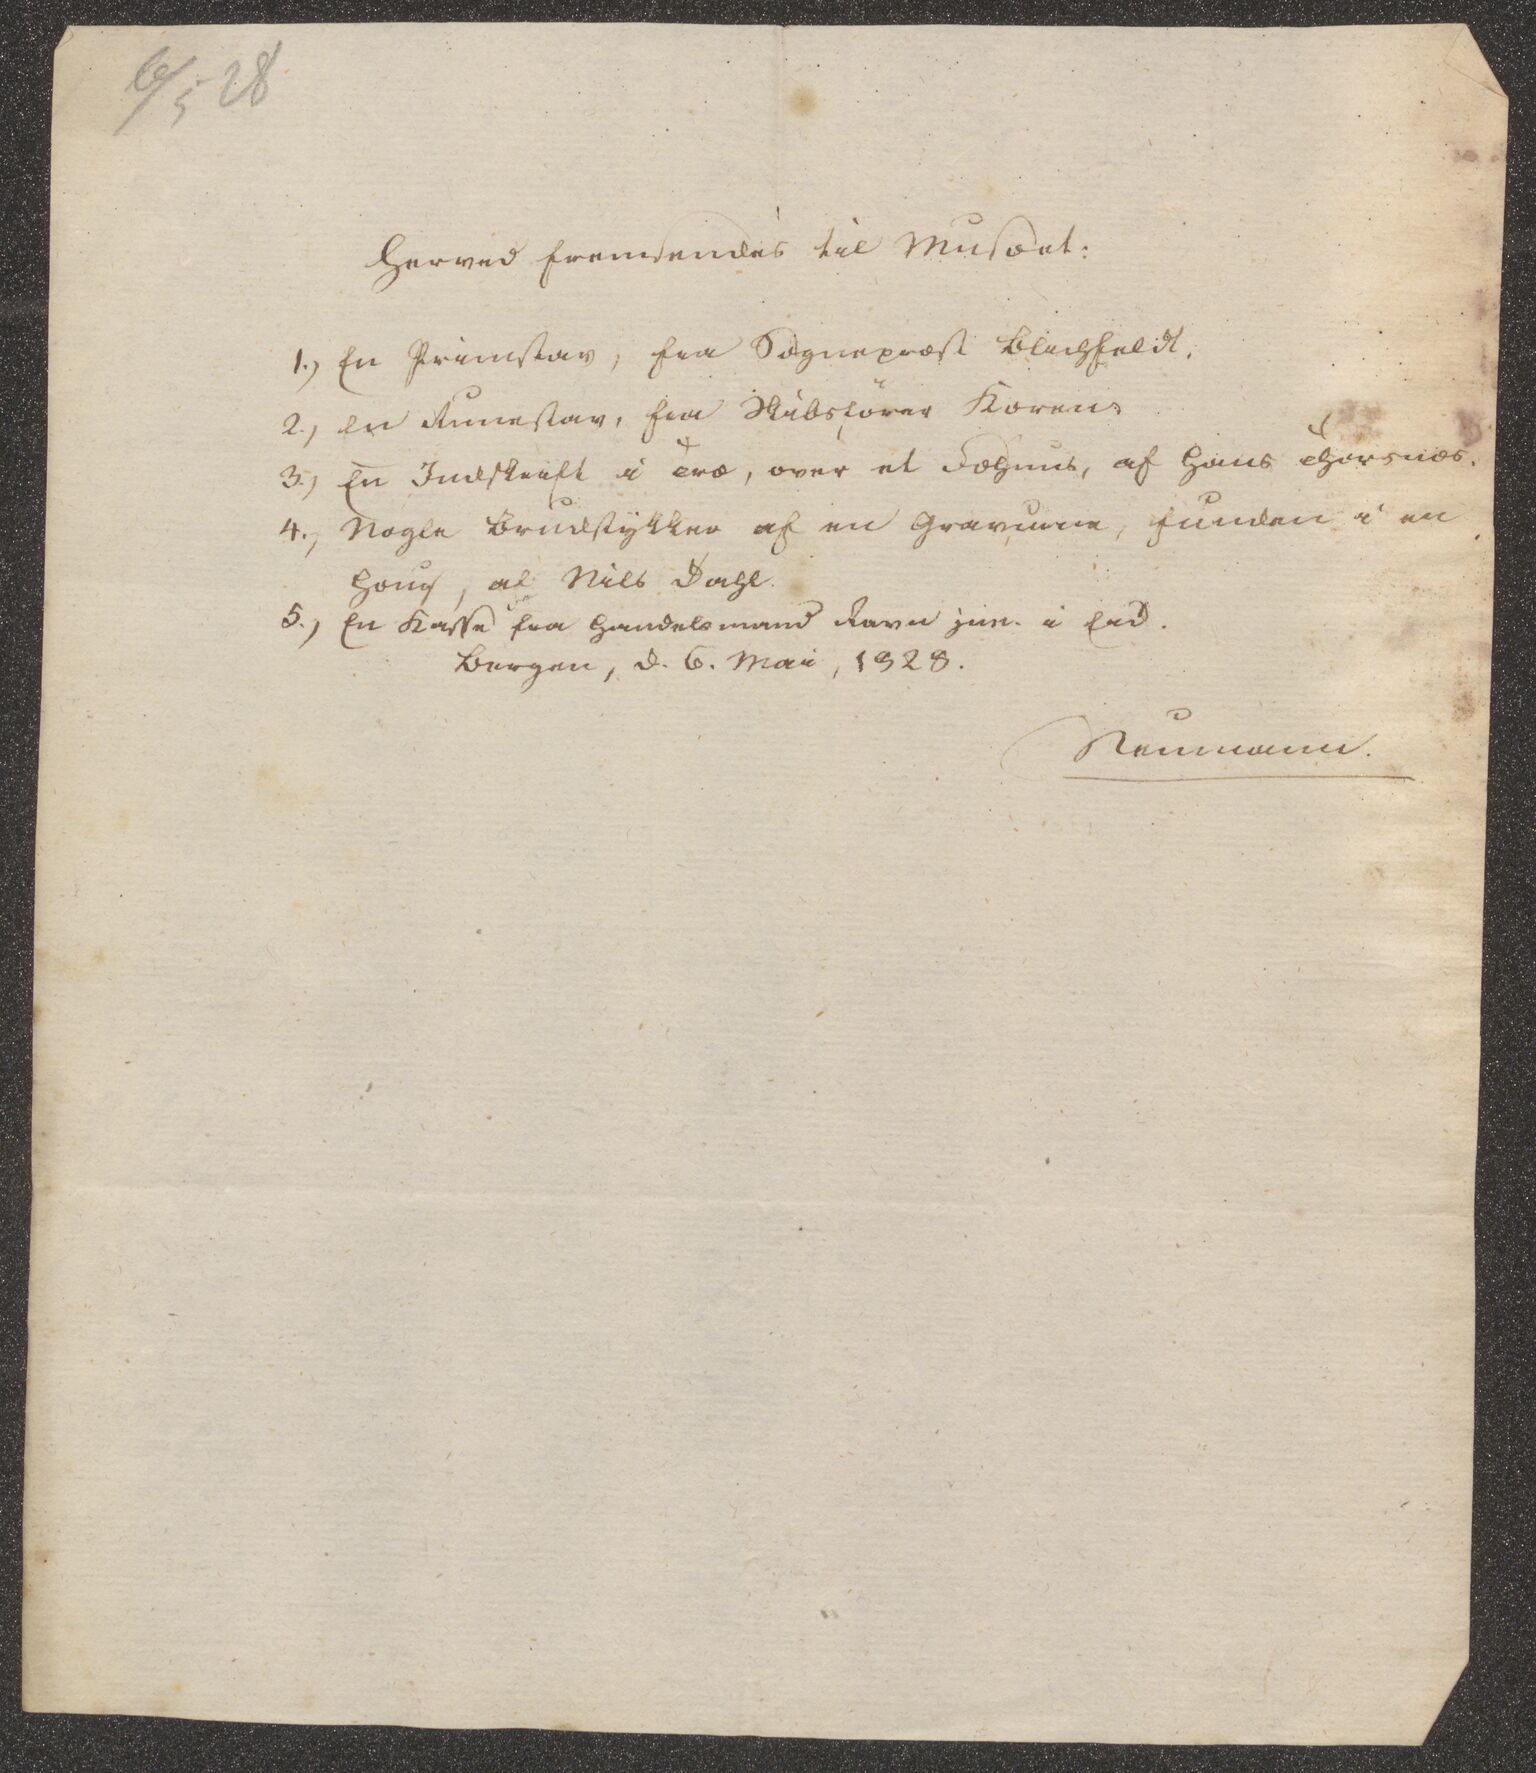 6/5 28
Herved fremsendes til Musæet:
1.) En Primstav, fra Sognepræst Blichfeldt.
2.) En Runestav, fra Skibsförer Koren.
3.) En Indskrift i Træ, over et Fæhuus, af Hans Thorsnæs.
4.) Nogle Brudstykker af en Gravurne, funden i en
Houg, af Nils Dahl.
5.) En Kasse fra Handelsmand Ravn jun. i Eid.
Bergen, d. 6. Mai, 1828.
Neumann.